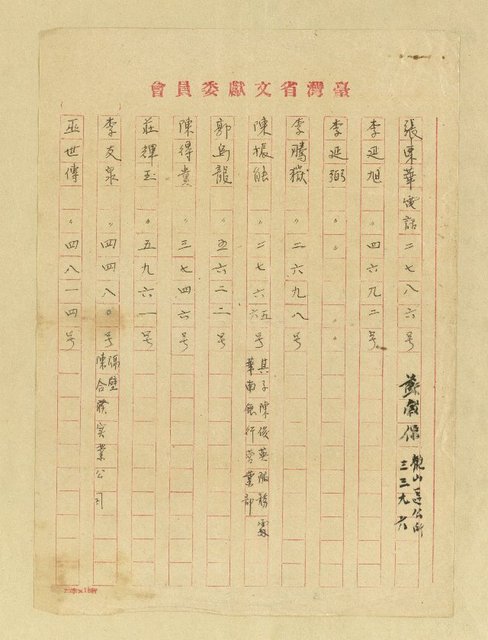 臺灣省文獻委員會
張華電話二七八六號
李延旭〃四六九二號
李延弼〃〃
李騰嶽〃二六九八號
陳振能〃二七六六五號
其子陳俊英服務處
華南銀行營業部
郭馬龍〃五六二二號
陳得貴〃三七四六號
莊輝玉〃五九六一號
李友泉〃四四八〇號
隔壁
陳合發實業公司
巫世傳〃四八一四號
龍山區公所
三三九六